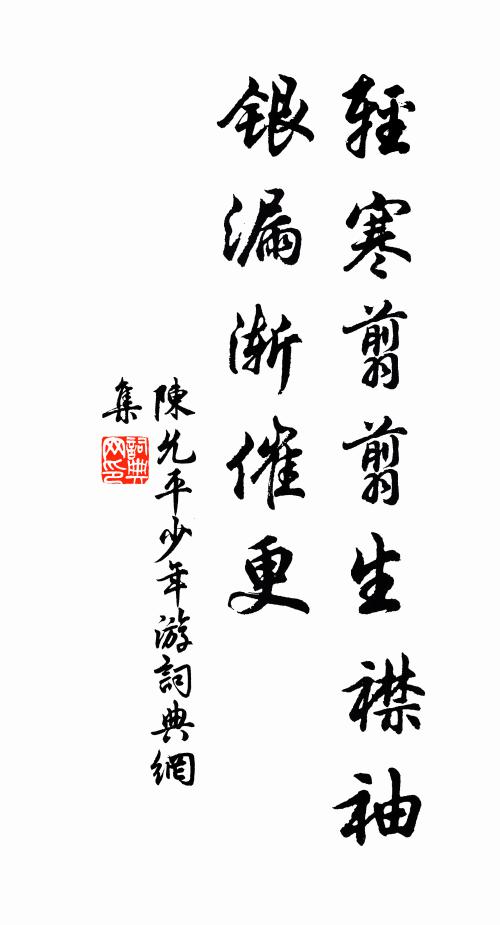 輕寒翦翦生襟袖
銀漏漸催更
陳允平少年游詞典網
集
詞典網印